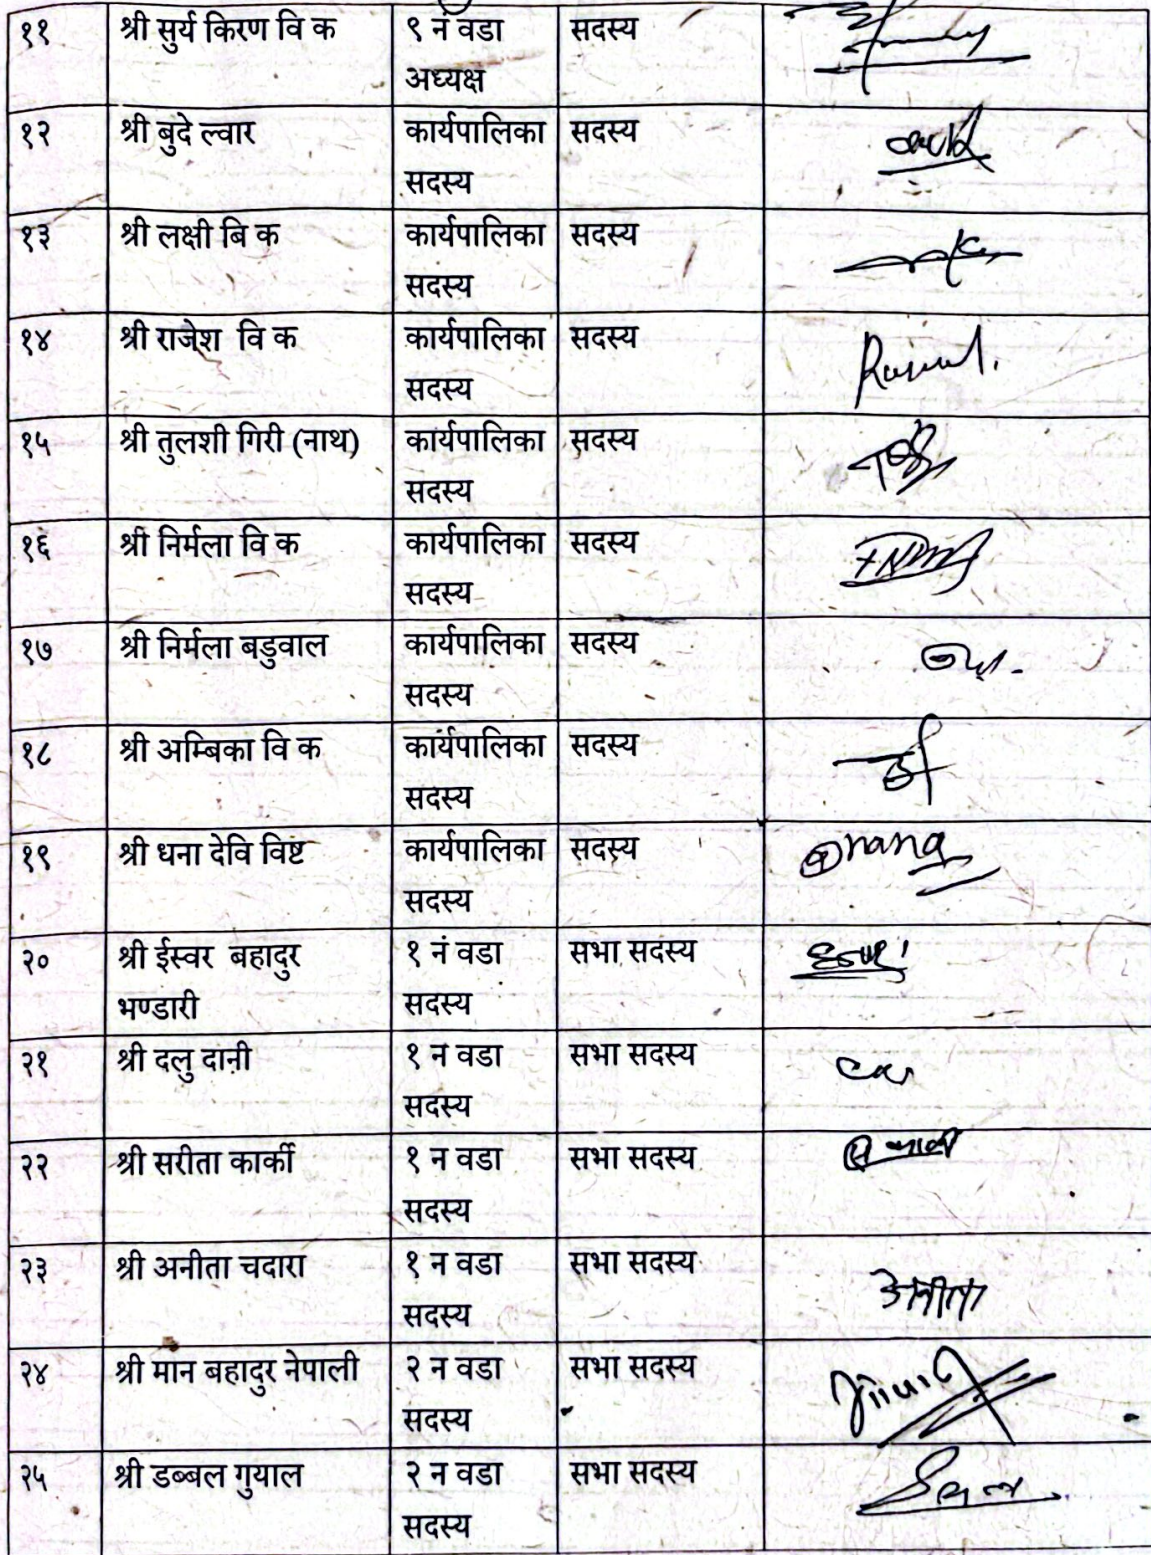 ११ श्री सुर्य किरण वि क ९ नं वडा सदस्य
अध्यक्ष
१२ श्री बुदे ल्वार कार्यपालिका सदस्य
सदस्य
१३ श्री लक्षी बि क कार्यपालिका सदस्य
सदस्य
१४ श्री राजेश वि क कार्यपालिका सदस्य
सदस्य
१५ श्री तुलशी गिरी (नाथ) कार्यपालिका सदस्य
सदस्य
१६ श्री निर्मला वि क कार्यपालिका सदस्य
सदस्य
१७ श्री निर्मला बडुवाल कार्यपालिका सदस्य
सदस्य
१८ श्री अम्बिका वि क कार्यपालिका सदस्य
सदस्य
१९ श्री धना देवि विष्ट कार्यपालिका सदस्य
सदस्य
२० श्री ईस्वर बहादुर १ नं वडा सभा सदस्य
भण्डारी सदस्य
२१ श्री दलु दानी १ न वडा सभा सदस्य
सदस्य
२२ श्री सरीता कार्की १ न वडा सभा सदस्य
सदस्य
२३ श्री अनीता चदारा १ न वडा सभा सदस्य
सदस्य अनीता
२४ श्री मान बहादुर नेपाली २ न वडा सभा सदस्य
सदस्य
२५ श्री डब्बल गुयाल २ न वडा सभा सदस्य
सदस्य